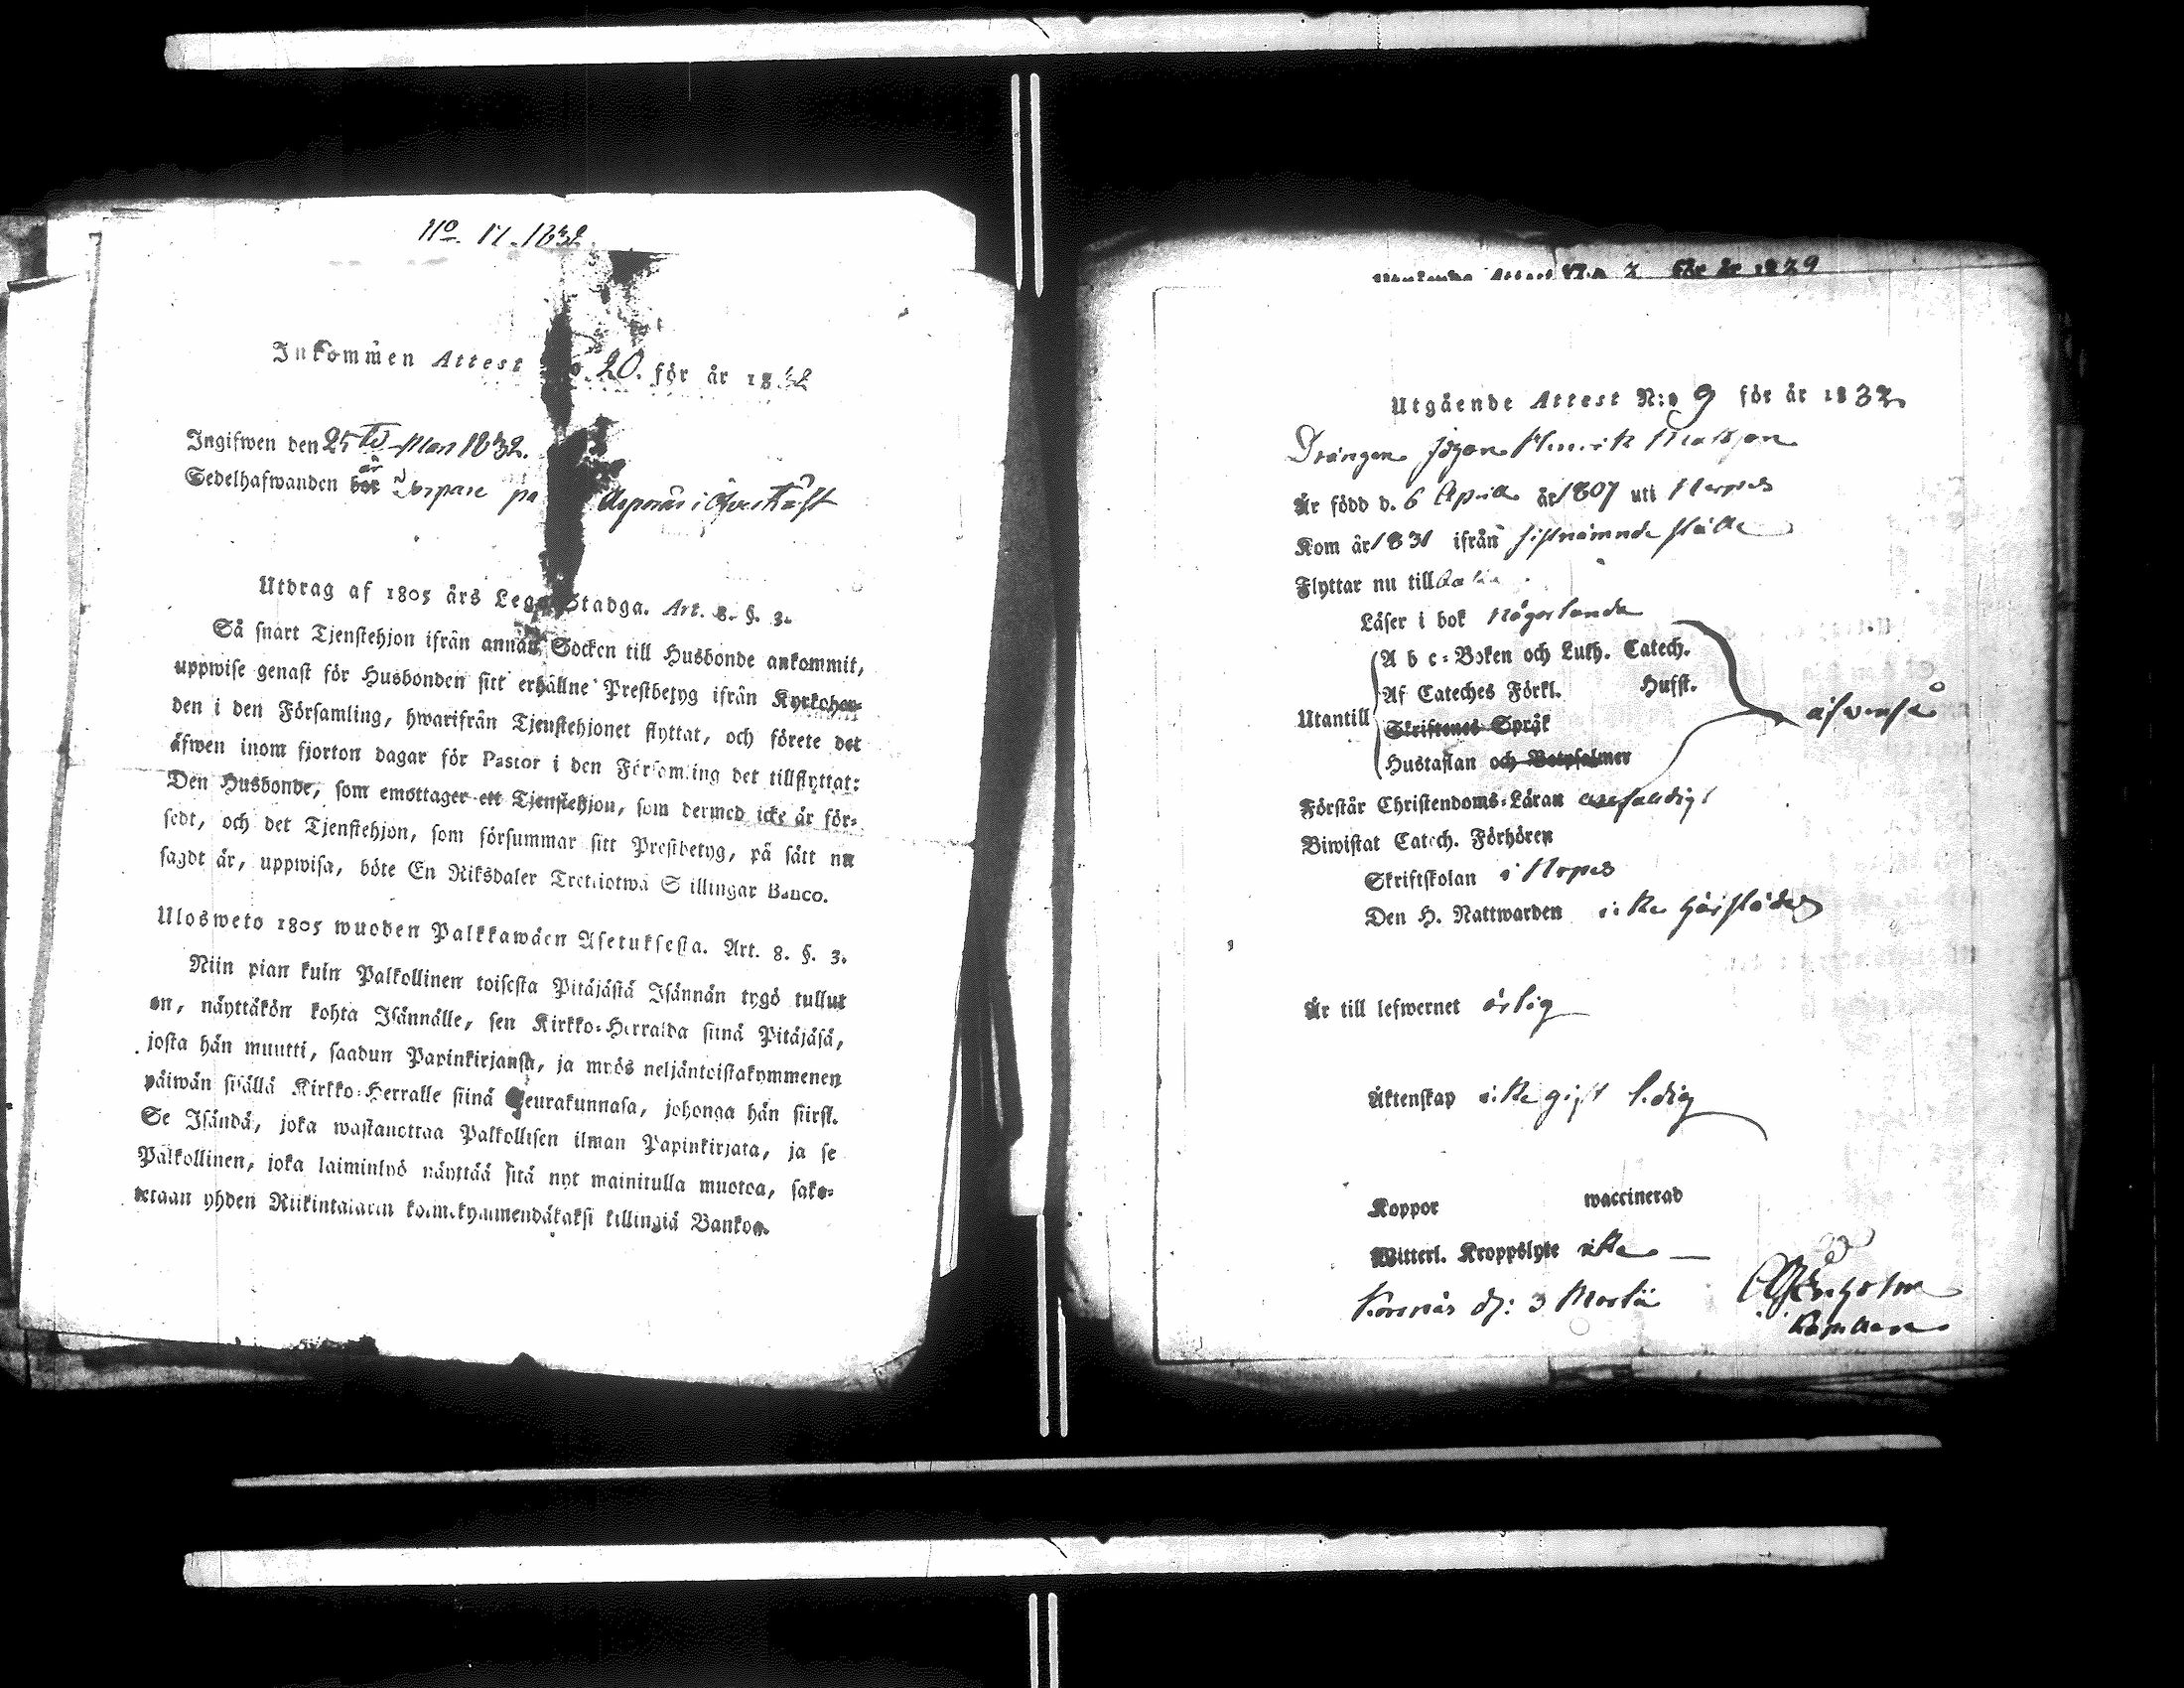 No. 17. 1832.
Inkommen Attest No. 20. för år 1832
Ingifwen den 25 Mars 1832.
Sedelhafwanden bor är på i
Utdrag af 1805 års Lego-Stadga. Art. 8. §. 3.
Så snart Tjenstehjon ifrån annan Socken till Husbonde ankommit,
uppwise genast för Husbonden sitt erhållne Prestbetyg ifrån Kyrkoher-
den i den Församling, hwarifrån Tjenstehjonet flyttat, och förete det
äfwen inom fjorton dagar för Pastor i den Församling det tillflyttat:
Den Husbonde, som emottager ett Tjenstehjon, som dermed icke är för-
sedt, och det Tjenstehjon, som försummar sitt Prestbetyg, på sätt nu
sagdt är, uppwisa, böte En Riksdaler Trettiotwå Skillingar Banco.
Ulosweto 1805 wuoden Palkkawäen Asetuksesta. Art. 8. §. 3.
Niin pian kuin Palkollinen toisesta Pitäjästä Isännän tygö tullut
on, näyttäkön kohta Isännälle, sen Kirkko-Herralda siinä Pitäjäsä,
josta hän muutti, saadun Papinkirjansa, ja myös neljäntoistakymmenen
päiwän sisällä Kirkko-Herralle siinä Seurakunnasa, johonga hän siirst.
Se Isändä, joka wastanottaa Palkollisen ilman Papinkirjata, ja se
Palkollinen, joka laiminlyö näyttää sitä nyt mainitulla muotoa, sako-
tetaan yhden Riikintalarin kolmekymmendäkaksi killingiä Bankoa.
Attest N:o 7 för år 1829
Utgående Attest N:o 9 för år 1832
Drängen Johan Henrik Mattson
Är född d. 6 April år 1807 uti
Kom år 1831 ifrån sistnämnde ställe
Flyttar nu till
Läser i bok någorlunda
Utantill
A b c-Boken och Luth. Catech.
Af Cateches Förkl. Husst.
Skriftenes Språk
Hustaflan och Botpsalmer
äfwenså
Förstår Christendoms-Läran enfaldigt
Biwistat Catech. Förhören
Skriftskolan i
Den H. Nattwarden icke härstädes
Är till lefwernet ärlig
Äktenskap icke gift ledig
Koppor waccinerad
Witterl. Kroppslyte icke
d: 3 Martii